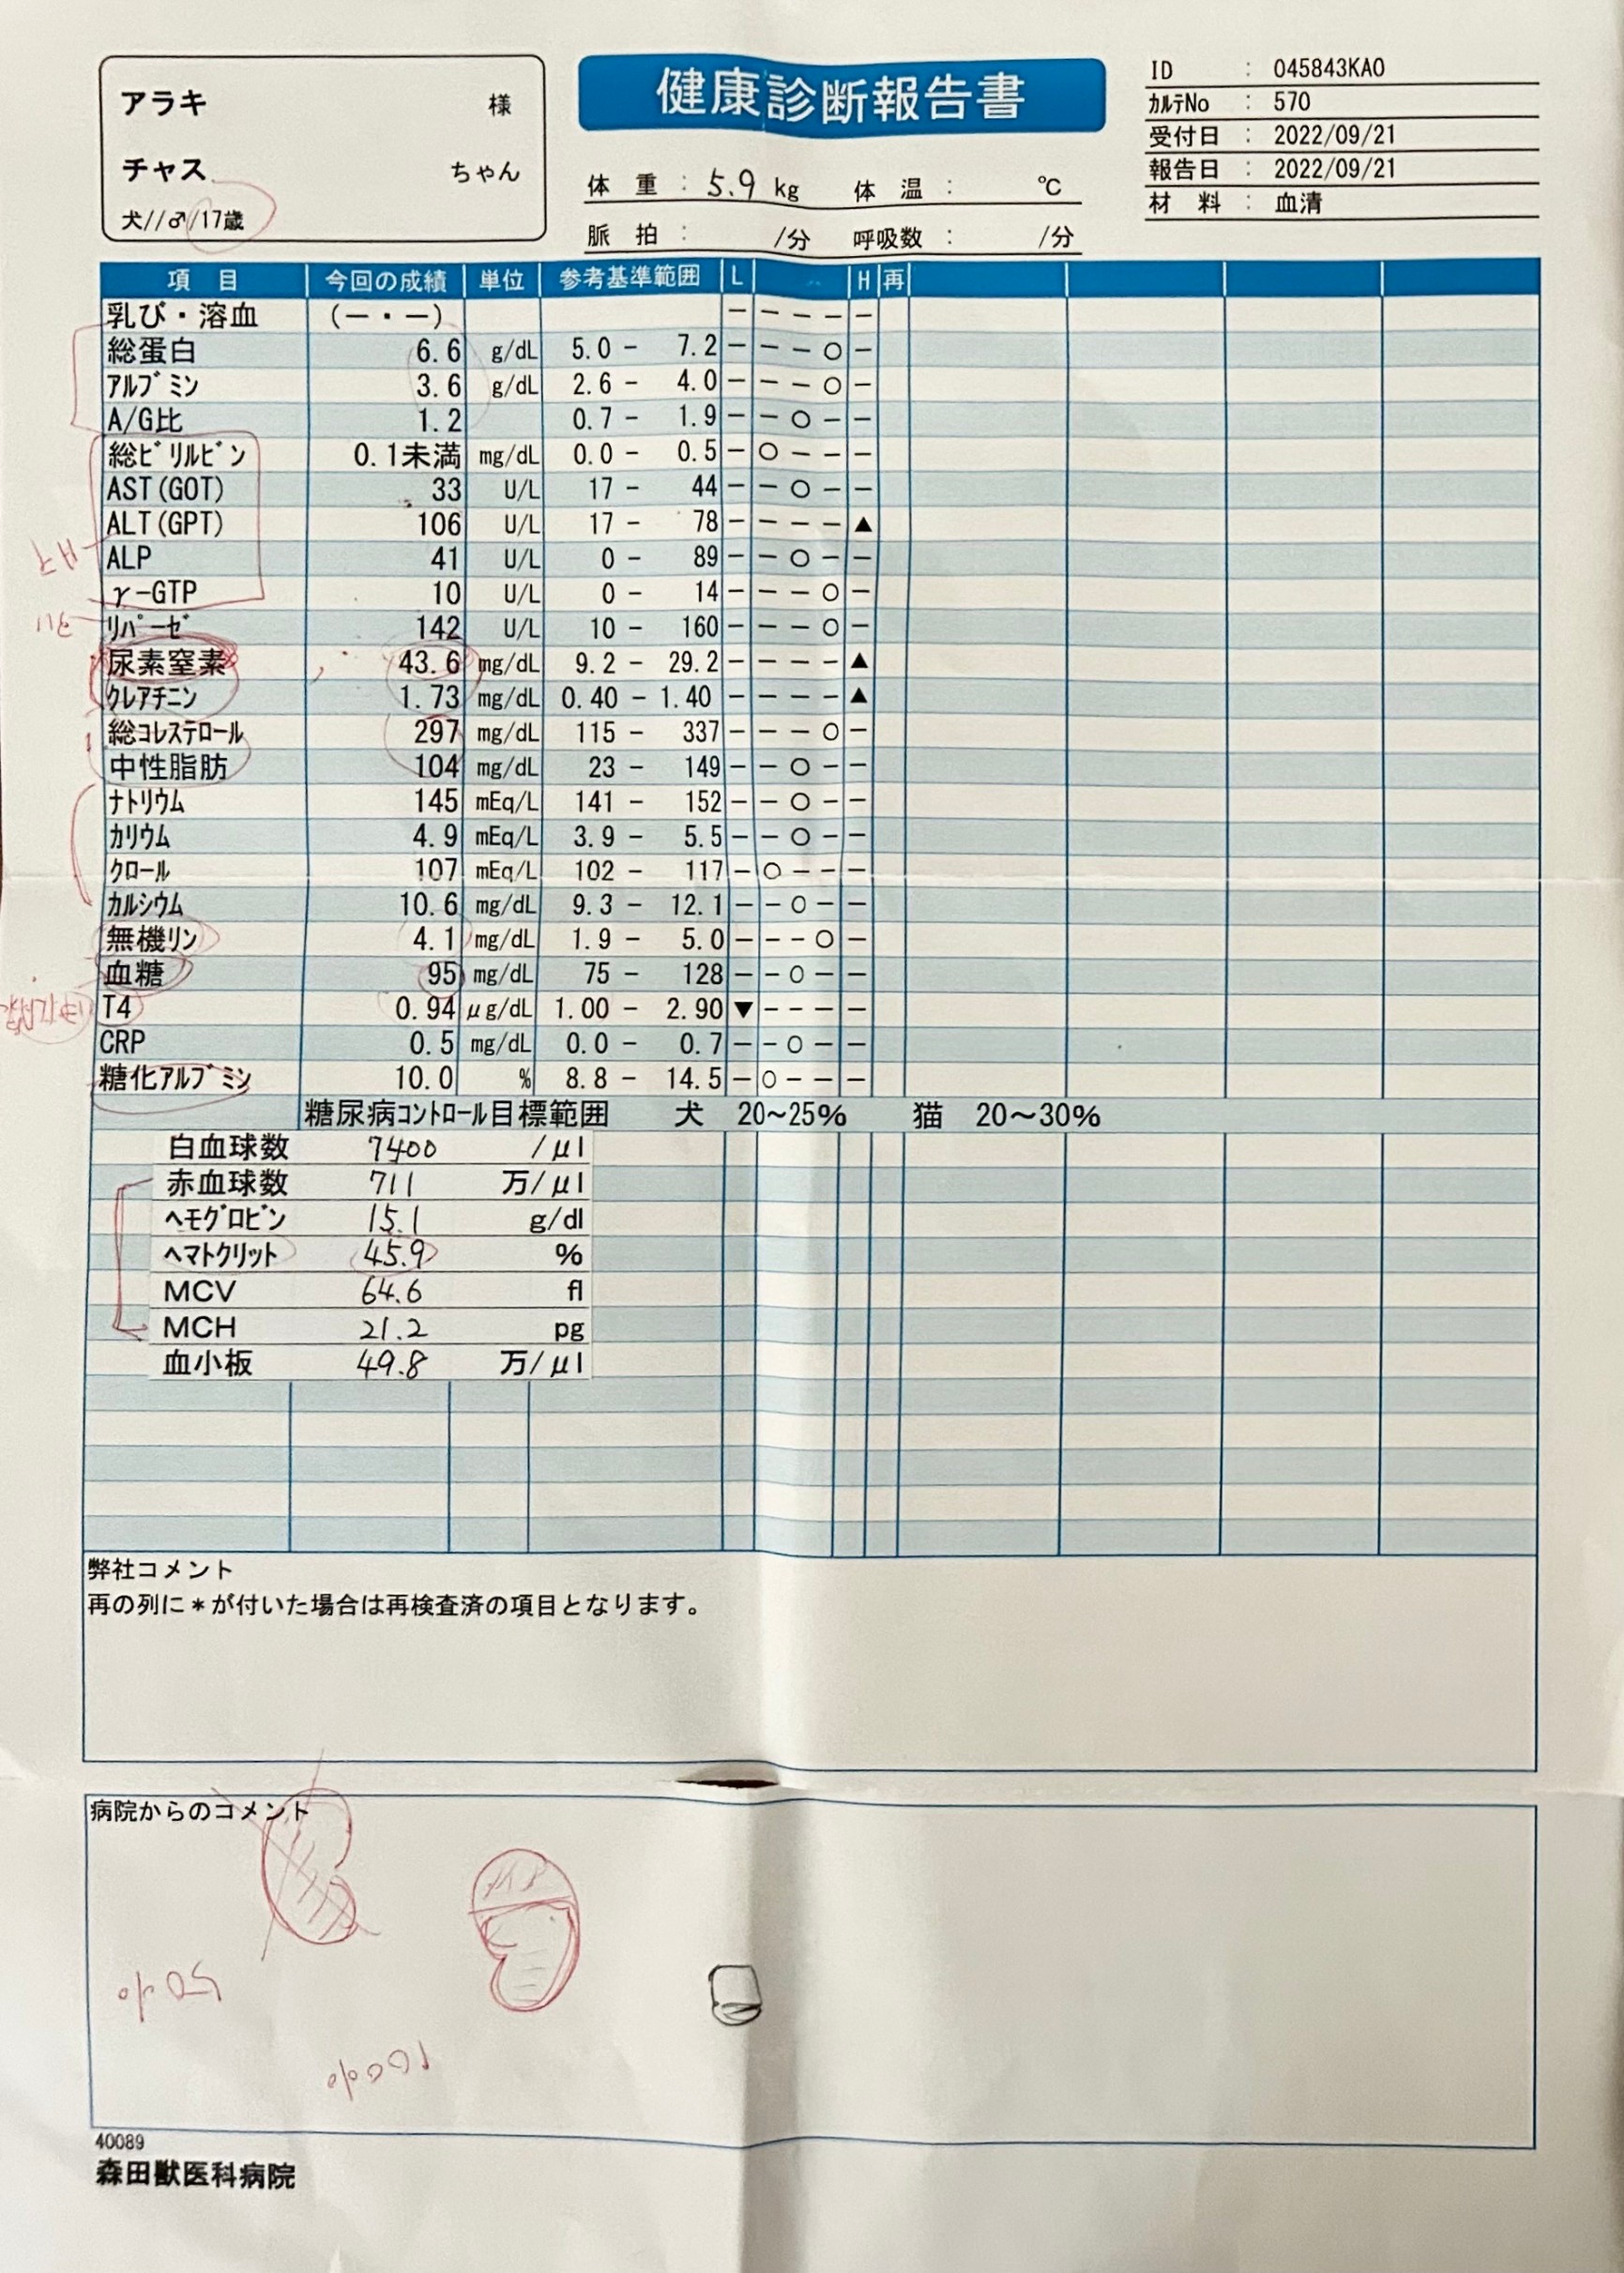 アラキ 様
チャス ちゃん
犬//♂/17歳
健康診断報告書
体 重 : 5.9 kg 体 温 : ℃
脈 拍 : /分 呼吸数 : /分
ID : 045843KA0
ｶﾙﾃNo : 570
受付日 : 2022/09/21
報告日 : 2022/09/21
材 料 : 血清
項 目 今回の成績 単位 参考基準範囲 L H 再
乳び・溶血 (－・－) － － － － －
総蛋白 6.6 g/dL 5.0 - 7.2 － － － ○ －
ｱﾙﾌﾞﾐﾝ 3.6 g/dL 2.6 - 4.0 － － － ○ －
A/G比 1.2 0.7 - 1.9 － － ○ － －
総ﾋﾞﾘﾙﾋﾞﾝ 0.1未満 mg/dL 0.0 - 0.5 － ○ － － －
AST(GOT) 33 U/L 17 - 44 － － ○ － －
ALT(GPT) 106 U/L 17 - 78 － － － － ▲
ALP 41 U/L 0 - 89 － － ○ － －
γ-GTP 10 U/L 0 - 14 － － － ○ －
ﾘﾊﾟｰｾﾞ 142 U/L 10 - 160 － － － ○ －
尿素窒素 43.6 mg/dL 9.2 - 29.2 － － － － ▲
ｸﾚｱﾁﾆﾝ 1.73 mg/dL 0.40 - 1.40 － － － － ▲
総ｺﾚｽﾃﾛｰﾙ 297 mg/dL 115 - 337 － － － ○ －
中性脂肪 104 mg/dL 23 - 149 － － ○ － －
ﾅﾄﾘｳﾑ 145 mEq/L 141 - 152 － － ○ － －
ｶﾘｳﾑ 4.9 mEq/L 3.9 - 5.5 － － ○ － －
ｸﾛｰﾙ 107 mEq/L 102 - 117 － ○ － － －
ｶﾙｼｳﾑ 10.6 mg/dL 9.3 - 12.1 － － ○ － －
無機リン 4.1 mg/dL 1.9 - 5.0 － － － ○ －
血糖 95 mg/dL 75 - 128 － － ○ － －
T4 0.94 μg/dL 1.00 - 2.90 ▼ － － － －
CRP 0.5 mg/dL 0.0 - 0.7 － － ○ － －
糖化ｱﾙﾌﾞﾐﾝ 10.0 % 8.8 - 14.5 － ○ － － －
糖尿病ｺﾝﾄﾛｰﾙ目標範囲 犬 20～25% 猫 20～30%
白血球数 7400 /μl
赤血球数 711 万/μl
ﾍﾓｸﾞﾛﾋﾞﾝ 15.1 g/dl
ﾍﾏﾄｸﾘｯﾄ 45.9 %
MCV 64.6 fl
MCH 21.2 pg
血小板 49.8 万/μl
弊社コメント
再の列に＊が付いた場合は再検査済の項目となります。
病院からのコメント
50%
100%
40089
森田獣医科病院